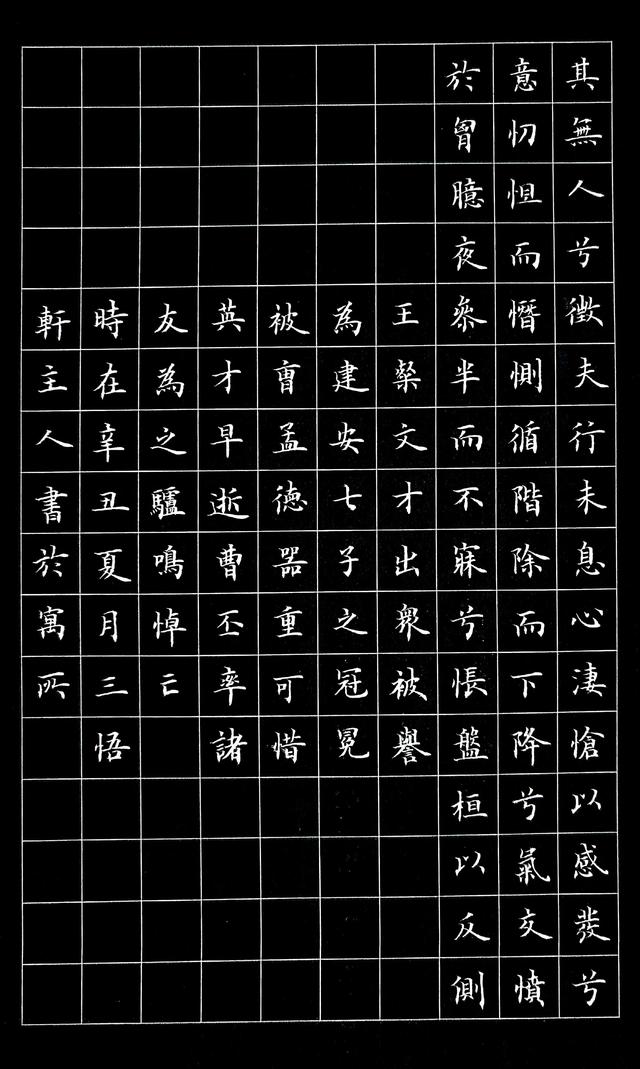 其無人兮徵夫行未息心淒愴以感發兮
意忉怛而憯惻循階除而下降兮氣交憤
於胷臆夜叅半而不寐兮悵盤桓以反側
王粲文才出衆被譽
為建安七子之冠冕
被曹孟德器重可惜
英才早逝曹丕率諸
友為之驢鳴悼亡
時在辛丑夏月三悟
軒主人書於寓所